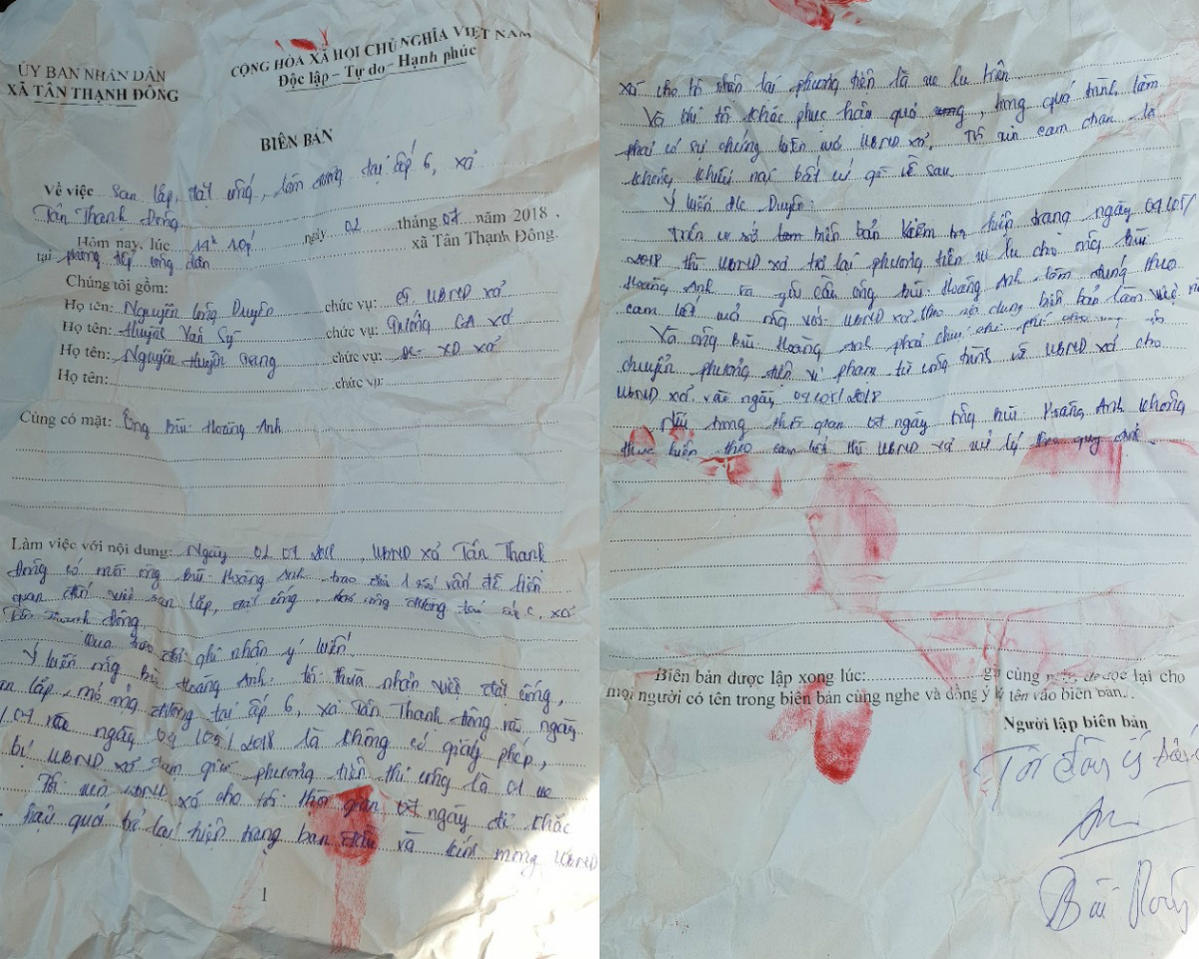 ỦY BAN NHÂN DÂN
XÃ TÂN THẠNH ĐÔNG
CỘNG HÒA XÃ HỘI CHỦ NGHĨA VIỆT NAM
Độc lập – Tự do – Hạnh phúc
BIÊN BẢN
Về việc san lấp, đặt cống, làm đường tại ấp 6, xã
Tân Thạnh Đông
Hôm nay, lúc 14h 10p ngày 02 tháng 07 năm 2018.
tại phòng tiếp công dân xã Tân Thạnh Đông.
Chúng tôi gồm:
Họ tên: Nguyễn Công Duyên chức vụ: UBND xã
Họ tên: Huỳnh Văn Sỹ chức vụ: CA xã
Họ tên: Nguyễn Huyền Trang chức vụ: ĐC-XD xã
Họ tên: chức vụ:
Cùng có mặt: Ông Bùi Hoàng Anh
Làm việc với nội dung: Ngày 02 07 2018, UBND xã Tân Thạnh
Đông có mời ông Bùi Hoàng Anh trao đổi 1 số vấn đề liên
quan đến việc san lấp, đặt cống, đường tại ấp 6, xã
Tân Thạnh Đông.
Qua trao đổi ghi nhận ý kiến:
Ý kiến ông Bùi Hoàng Anh: tôi thừa nhận việc đặt cống,
san lấp, mở rộng đường tại ấp 6, xã Tân Thạnh Đông vào ngày
vào ngày 09/05/2018 là không có giấy phép,
bị UBND xã tạm giữ phương tiện thi công là 01 xe
Tôi xin UBND xã cho tôi thời gian 07 ngày để khắc
hậu quả trả lại hiện trạng ban đầu và kính mong UBND
1
xã cho tôi nhận lại phương tiện là xe lu trên
Và khi tôi khắc phục hậu quả, trong quá trình làm
phải có sự chứng kiến của UBND xã. Tôi xin cam đoan là
không khiếu nại bất cứ gì về sau
Ý kiến đ/c Duyên:
Trên cơ sở biên bản kiểm tra hiện trạng ngày 09/05/
2018 thì UBND xã trả lại phương tiện xe lu cho ông Bùi
Hoàng Anh và yêu cầu ông Bùi Hoàng Anh làm đúng theo
cam kết của ông với UBND xã theo nội dung biên bản làm việc
Và ông Bùi Hoàng Anh phải chịu chi phí
chuyển phương tiện vi phạm từ công trình về UBND xã cho
UBND xã vào ngày 09/05/2018
Nếu trong thời gian 07 ngày ông Bùi Hoàng Anh không
thực hiện theo cam kết thì UBND xã xử lý theo quy định.
Biên bản được lập xong lúc: cùng ngày đọc lại cho
mọi người có tên trong biên bản cùng nghe và đồng ý ký tên vào biên bản.
Người lập biên bản
Tôi đồng ý
Anh
Bùi Hoàng